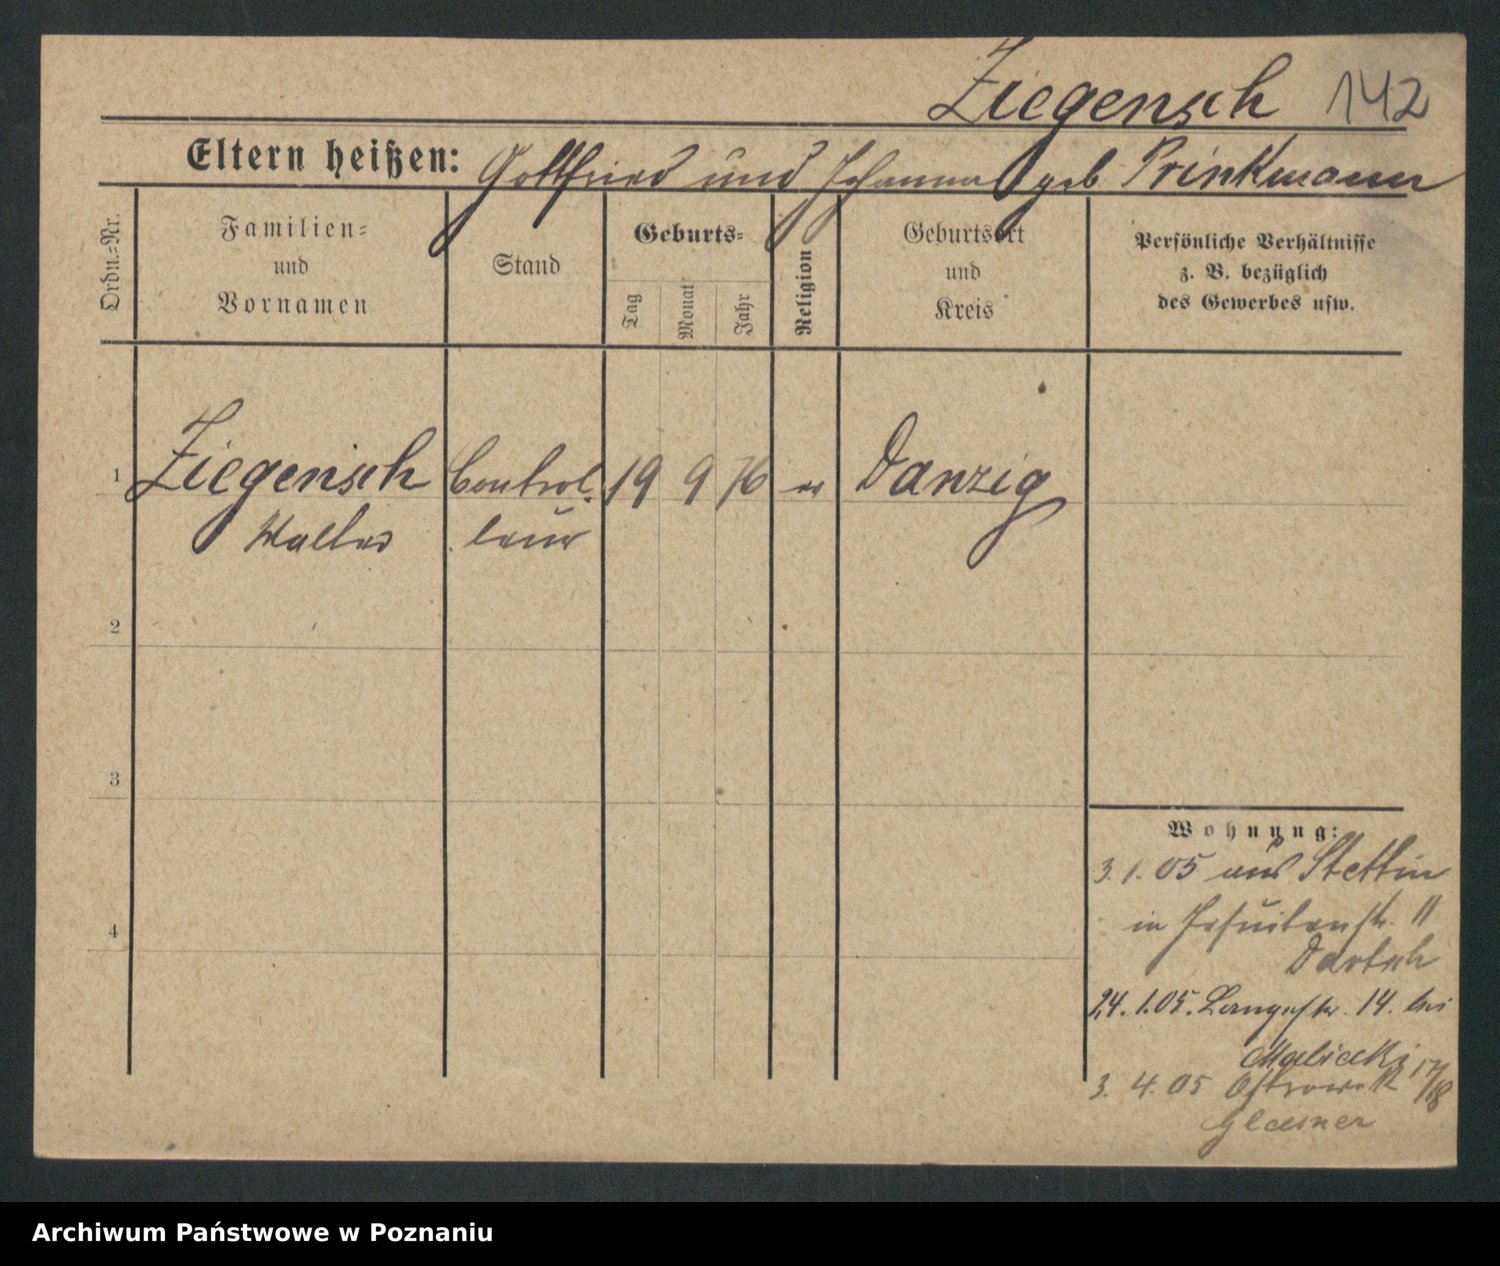 Ziegensch 142
Eltern heißen: Gottfried und Johanna geb Prinkmann
Ordn.-Nr.
Familien-
und
Vornamen
Stand
Geburts-
Tag
Monat
Jahr
Religion
Geburtsort
und
Kreis
Persönliche Verhältnisse
z. B. bezüglich
des Gewerbes usw.
1 Ziegensch Control- 19 9 76 ev Danzig
Walter leur
2
3
4
Wohnung:
3. 1. 05 aus Stettin
in Jesuitenstr. 11
24. 1. 05. Langestr. 14. bei
Malicki
3. 4. 05 Ostrowek 17/18
Glasner
Archiwum Państwowe w Poznaniu